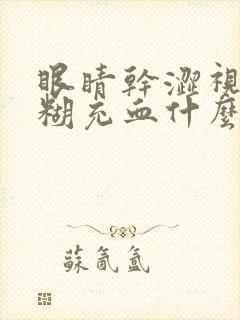 眼睛幹澀視
糊充血什麼
蘇氤氳